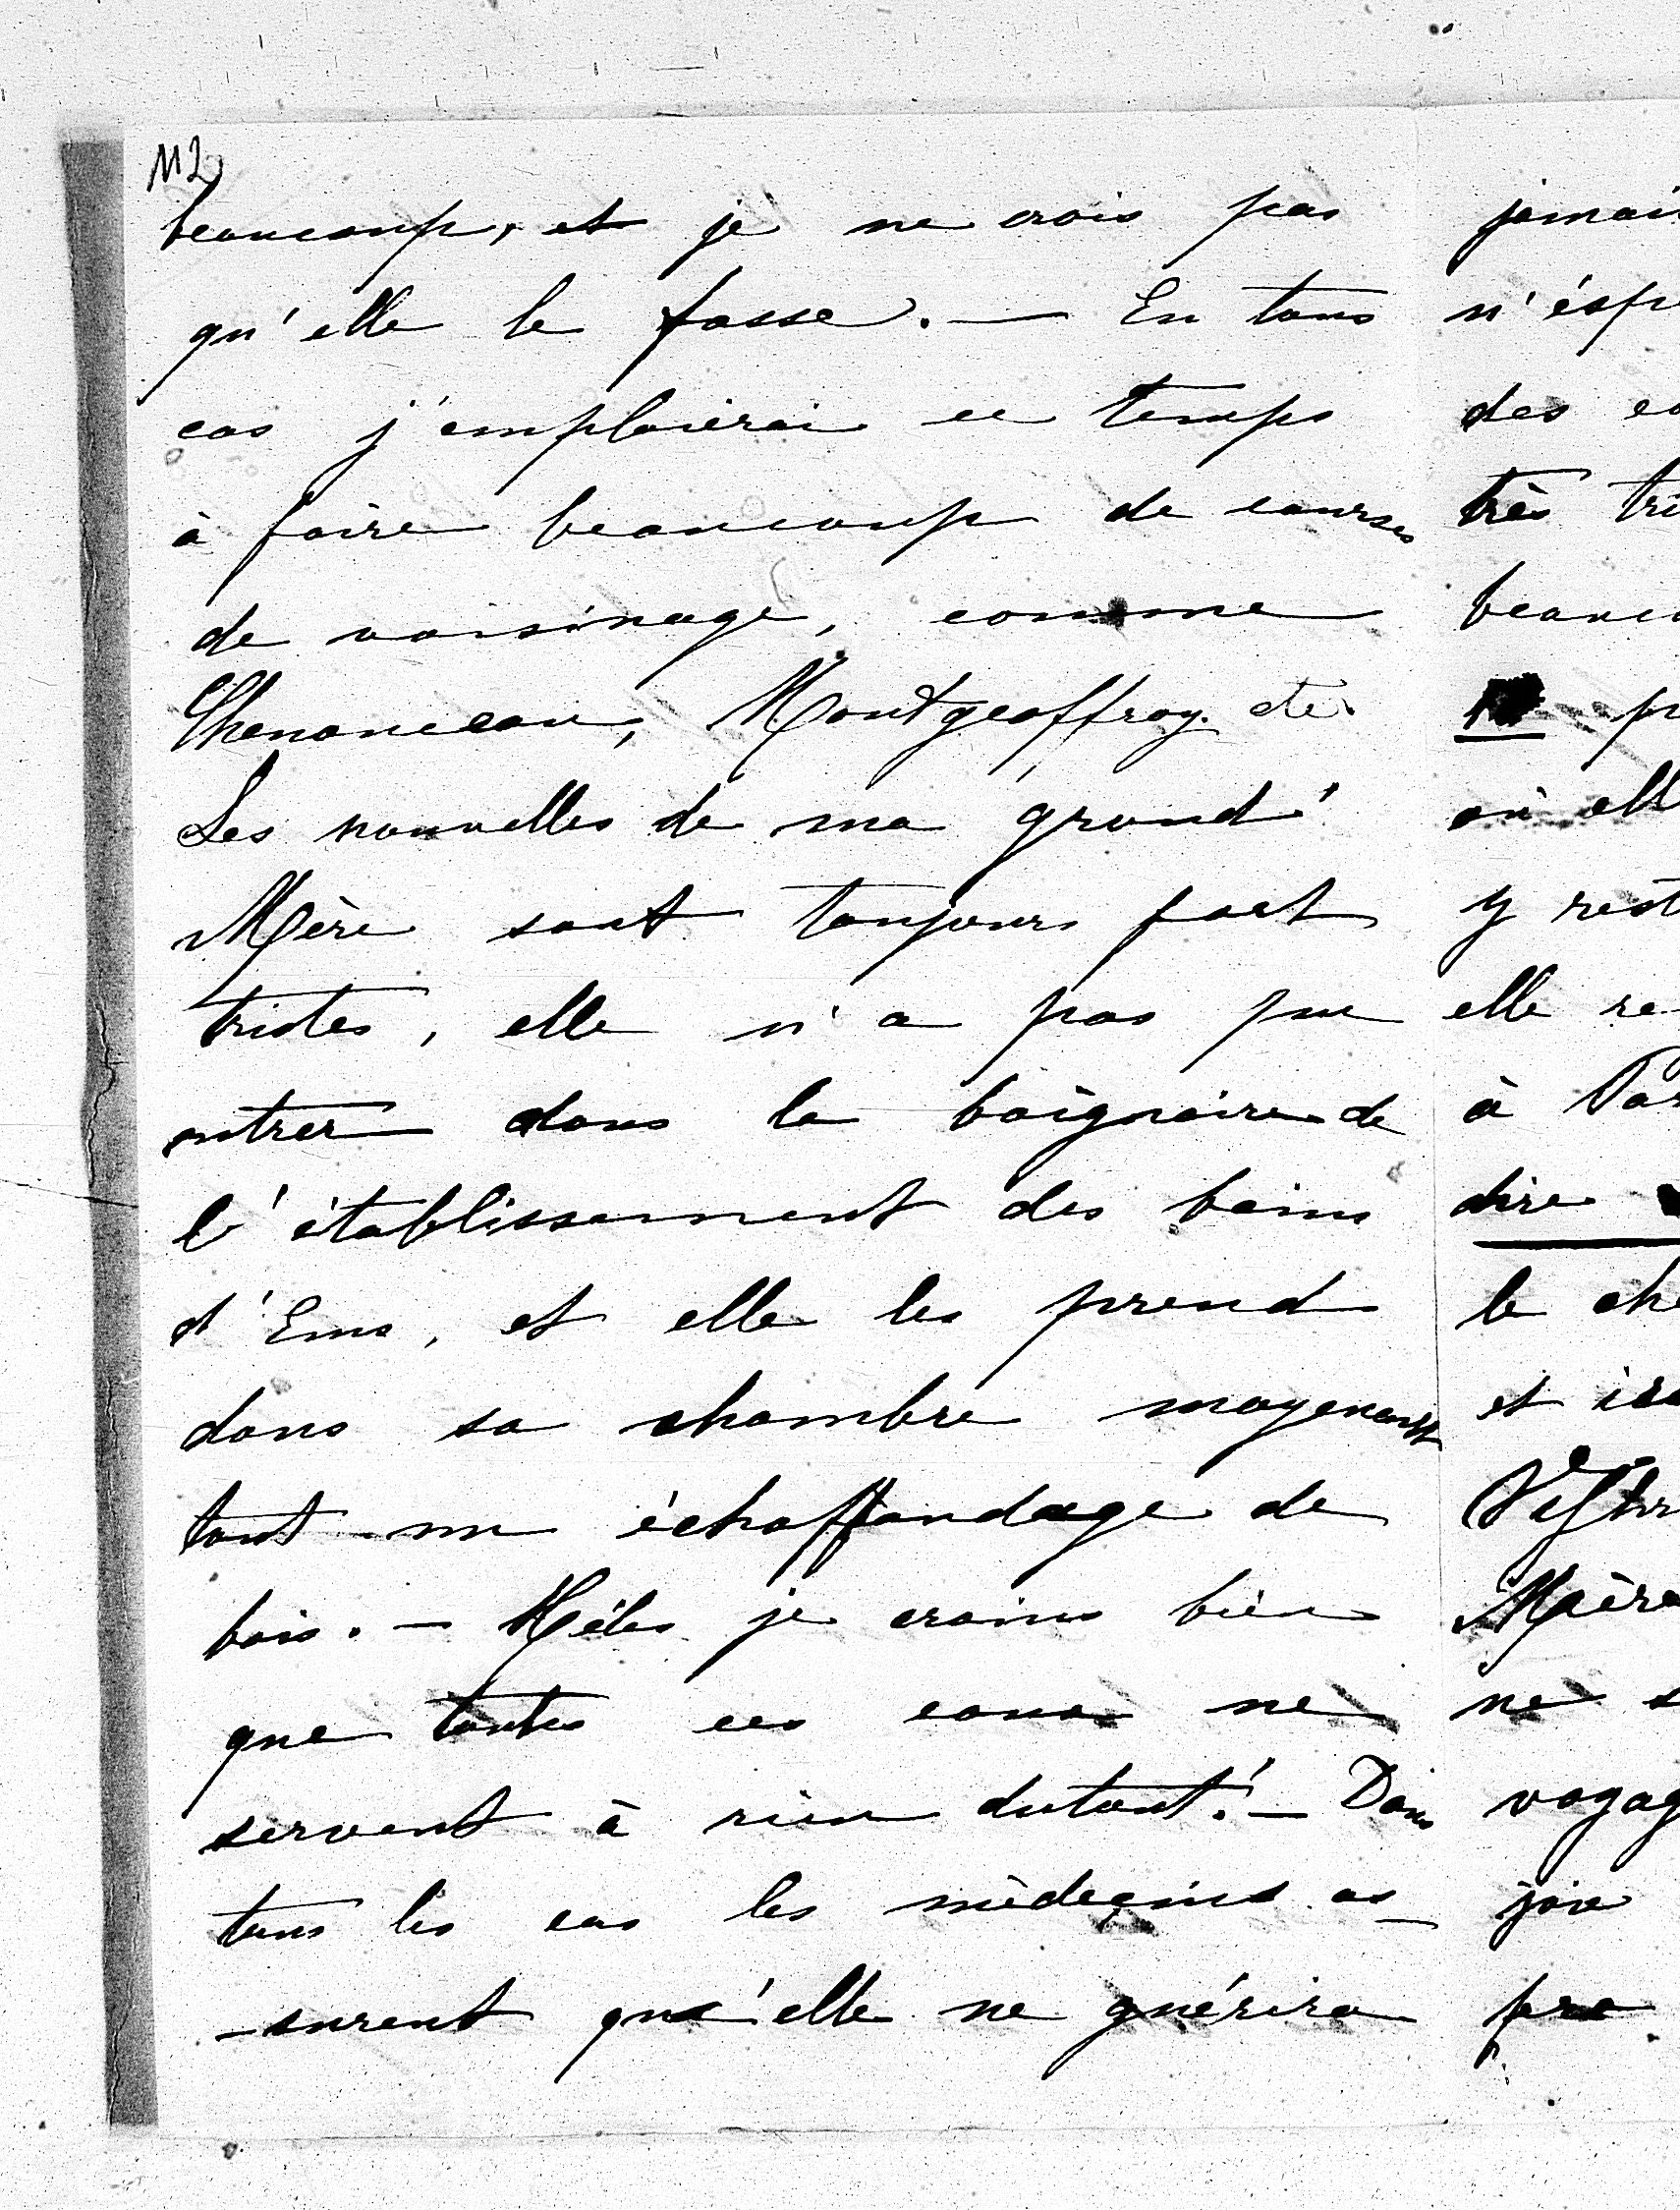 112
beaucoup, et je ne crois pas
qu'elle le fasse. — En tous
cas j'emploierai ce temps
à faire beaucoup de courses
de voisinage, comme
Chenonceau, Montgeoffroy. etc.
Les nouvelles de ma grand'
Mère sont toujours fort
tristes, elle n'a pas pu
entrer dans la baignoire de
l'établissement des bains
d'Ems, et elle les prend
dans sa chambre moyenant
tout un échaffaudage de
bois. — Hélas je crains bien
que toutes ces eaux ne
servent à rien dutout! — Dans
tous les cas les médecins as-
-surent qu'elle ne guérira
jamai
n'esp
des
très tri
beauc
p
où ell
y rest
elle re
à Par
dire
le che
et
Mère
ne s
voyag
joie